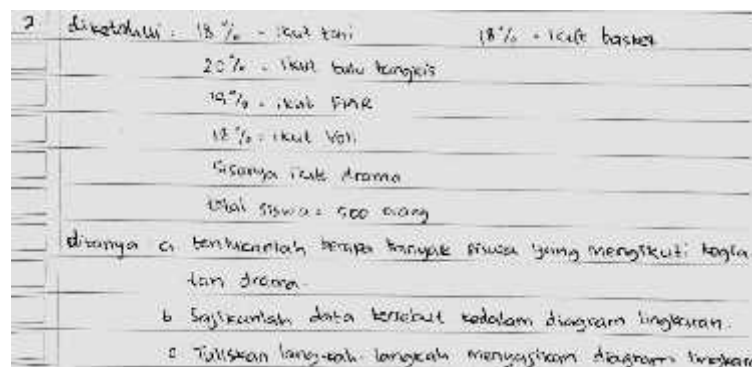 2 diketahui : 18 % - ikut tari 18 % - ikut basket
20 % - ikut bulu tangkis
% - ikut PMR
12 % - ikut Voli
Sisanya ikut drama
total siswa = 500 orang
ditanya a. tentukanlah berapa banyak siswa yang mengikuti kegia
tan drama.
b Sajikanlah data tersebut kedalam diagram lingkaran.
c Tuliskan langkah-langkah menyajikan diagram lingkaran